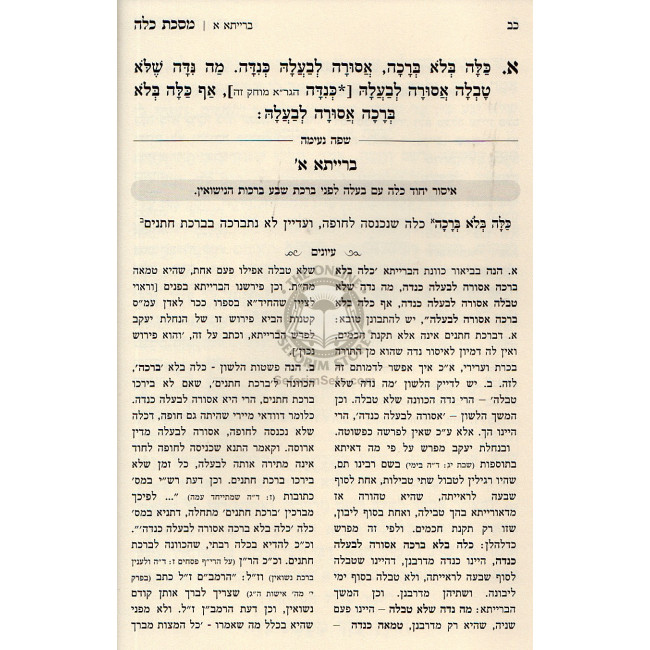 כב
ברייתא א | מסכת כלה
א. כַּלָּה בְּלֹא בְּרָכָה, אֲסוּרָה לְבַעְלָהּ כְּנִדָּה. מַה נִּדָּה שֶׁלֹּא
טָבְלָה אֲסוּרָה לְבַעְלָהּ [*כְּנִדָּה הגר״א מוחק זה], אַף כַּלָּה בְּלֹא
בְּרָכָה אֲסוּרָה לְבַעְלָהּ:
שפה נעימה
ברייתא א'
איסור יחוד כלה עם בעלה לפני ברכת שבע ברכות הנישואין.
כַּלָּה בְּלֹא בְּרָכָהא כלה שנכנסה לחופה, ועדיין לא נתברכה בברכת חתניםב
עיונים
א. הנה בביאור כוונת הברייתא ׳כלה בלא
ברכה אסורה לבעלה כנדה, מה נדה שלא
טבלה אסורה לבעלה כנדה, אף כלה בלא
ברכה אסורה לבעלה״, יש להתבונן טובא:
א. דברכת חתנים אינה אלא תקנת חכמים,
ואין לה דמיון לאיסור נדה שהוא מן התורה
בכרת וערירי, א״כ איך אפשר לדמותם זה
לזה. ב. יש לדייק הלשון ׳מה נדה שלא
טבלה׳ – הרי נדה הכוונה שלא טבלה. וכן
המשך הלשון – ׳אסורה לבעלה כנדה׳, הרי
היינו הך. אלא ע״כ שאין לפרשה כפשוטה.
ובנחלת יעקב מפרש על פי מה דאיתא
בתוספות (שבת יג: ד״ה בימי) בשם רבינו תם,
שהיו רגילין לטבול שתי טבילות, אחת לסוף
שבעה לראייתה, שהיא טהורה אז
מדאורייתא בהך טבילה, ואחת בסוף ליבון,
שזו רק תקנת חכמים. ולפי זה מפרש
כדלהלן: כלה בלא ברכה אסורה לבעלה
כנדה, היינו כנדה מדרבנן, דהיינו שטבלה
לסוף שבעה לראייתה, ולא טבלה בסוף ימי
ליבונה. ושתיהן מדרבנן. וכן המשך
הברייתא: מה נדה שלא טבלה – היינו פעם
שניה, שהיא רק מדרבנן, טמאה כנדה –
שלא טבלה אפילו פעם אחת, שהיא טמאה
מה״ת. וכן פירשנו הברייתא בפנים [וראוי
לציין שהחיד״א בספרו ככר לאדן עמ״ס
קטנות הביא פירוש זו של הנחלת יעקב
לפרש הברייתא, וכתב על זה, ׳והוא פירוש
נכון׳].
ב. הנה פשטות הלשון - כלה בלא ׳ברכה׳,
הכוונה ל׳ברכת חתנים׳, שאם לא בירכו
ברכת חתנים, הרי היא אסורה לבעלה כנדה.
כלומר דוודאי מיירי שהיתה גם חופה, דכלה
שלא נכנסה לחופה, אסורה לבעלה מדין
ארוסה. וקאמר התנא שכניסה לחופה לחוד
אינה מתירה אותה לבעלה, כל זמן שלא
בירכו ברכת חתנים. וכן דעת רש״י במס׳
כתובות (ז: ד״ה שמתייחד עמה) ״... לפיכך
מברכין ׳ברכת חתנים׳ מתחלה, דתניא במס׳
כלה ׳כלה בלא ברכה אסורה לבעלה כנדה׳״.
וכ״כ להדיא בכלה רבתי, שהכוונה לברכת
חתנים. וכ״כ הר״ן (על הרי״ף פסחים ז: ד״ה ולענין
ברכת נשואין) וז״ל: ״הרמב״ם ז״ל כתב (בפרק
י׳ מה׳ אישות ה״ג) שצריך לברך אותן קודם
נשואין, וכן דעת הרמב״ן ז״ל. ולא מפני
שהיא בכלל מה שאמרו - ׳כל המצות מברך
THE ONLINE SEFORIM STORE
SeforimSets.com